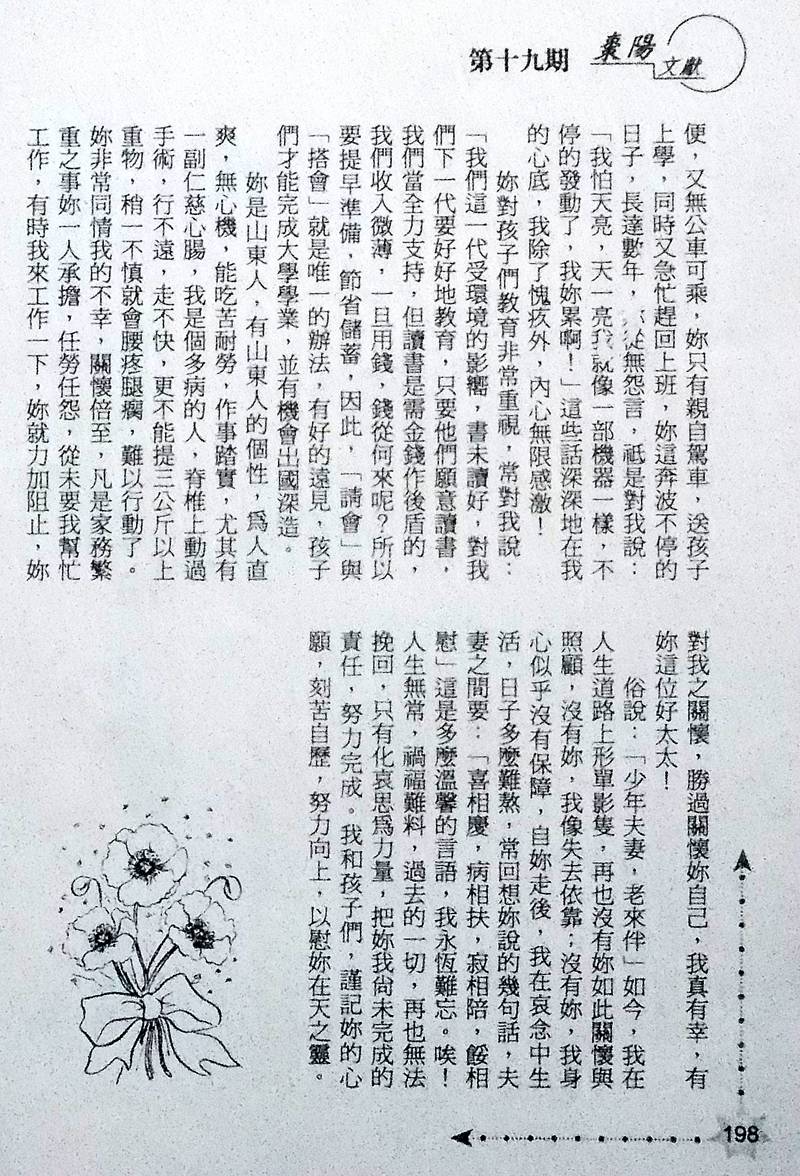 棗陽
文獻
第十九期
便，又無公車可乘，妳只有親自駕車，送孩子
上學，同時又急忙趕回上班，妳這奔波不停的
日子，長達數年，從無怨言，祗是對我說：
「我怕天亮，天一亮我就像一部機器一樣，不
停的發動了，我妳累啊！」這些話深深地在我
的心底，我除了愧疚外，內心無限感激！
妳對孩子們教育非常重視，常對我說：
「我們這一代受環境的影嚮，書未讀好，對我
們下一代要好好地教育，只要他們願意讀書，
我們當全力支持，但讀書是需金錢作後盾的，
我們收入微薄，一旦用錢，錢從何來呢？所以
要提早準備，節省儲蓄，因此，「請會」與
「搭會」就是唯一的辦法，有好的遠見，孩子
們才能完成大學學業，並有機會出國深造。
妳是山東人，有山東人的個性，為人直
爽，無心機，能吃苦耐勞，作事踏實，尤其有
一副仁慈心腸，我是個多病的人，脊椎上動過
手術，行不遠，走不快，更不能提三公斤以上
重物，稍一不慎就會腰疼腿痛，難以行動了。
妳非常同情我的不幸，關懷倍至，凡是家務繁
重之事妳一人承擔，任勞任怨，從未要我幫忙
工作，有時我來工作一下，妳就力加阻止，妳
對我之關懷，勝過關懷妳自己，我真有幸，有
妳這位好太太！
俗說：「少年夫妻，老來伴」如今，我在
人生道路上形單影隻，再也沒有妳如此關懷與
照顧，沒有妳，我像失去依靠；沒有妳，我身
心似乎沒有保障，自妳走後，我在哀念中生
活，日子多麼難熬，常回想妳說的幾句話，夫
妻之間要：「喜相慶，病相扶，寂相陪，餒相
慰」這是多麼溫馨的言語，我永恆難忘。唉！
人生無常，禍福難料，過去的一切，再也無法
挽回，只有化哀思為力量，把妳我尙未完成的
責任，努力完成。我和孩子們，謹記妳的心
願，刻苦自歷，努力向上，以慰妳在天之靈。
198